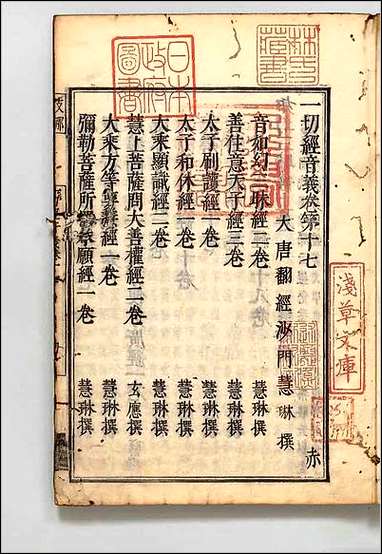 一切經音義卷第十七 赤
大唐翻經沙門慧琳撰
音如幻三昧經三卷 慧琳撰
善住意天子經三卷 慧琳撰
太子刷護經一卷 慧琳撰
太子和休經一卷 慧琳撰
大乘顯識經二卷 慧琳撰
慧上菩薩問大善權經二卷 玄應撰
大乘方等要慧經一卷 慧琳撰
彌勒菩薩所問本願經一卷 慧琳撰
日本
政府
圖書
林氏
藏書
淺草文庫